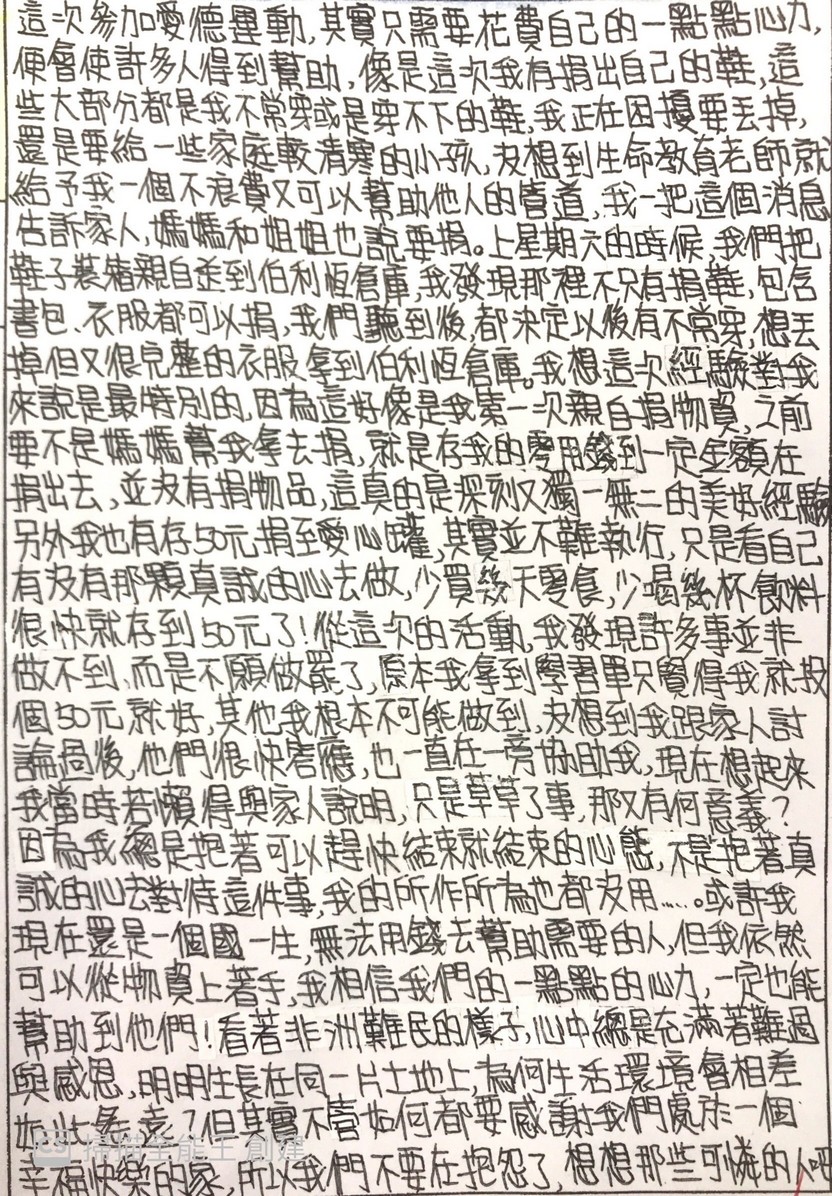 這次參加愛德運動,其實只需要花費自己的一點點心力,
便會使許多人得到幫助,像是這次我有捐出自己的鞋,這
些大部分都是我不常穿或是穿不下的鞋,我正在困擾要丟掉,
還是要給一些家庭較清寒的小孩,沒想到生命教育老師就
給予我一個不浪費又可以幫助他人的管道,我一把這個消息
告訴家人,媽媽和姐姐也說要捐。上星期六的時候,我們把
鞋子裝箱親自走到伯利恆倉庫,我發現那裡不只有捐鞋,包含
書包、衣服都可以捐,我們聽到後,都決定以後有不常穿,想丟
掉但又很完整的衣服拿到伯利恆倉庫。我想這次經驗對我
來說是最特別的,因為這好像是我第一次親自捐物資,之前
要不是媽媽幫我拿去捐,就是存我的零用錢到一定金額在
捐出去,並沒有捐物品,這真的是深刻又獨一無二的美好經驗
另外我也有存50元捐至愛心罐,其實並不難執行,只是看自己
有沒有那顆真誠的心去做,少買幾天零食,少喝幾杯飲料
很快就存到50元了!從這次的活動,我發現許多事並非
做不到,而是不願做罷了,原本我拿到學習單只覺得我就投
個50元就好,其他我根本不可能做到,沒想到我跟家人討
論過後,他們很快答應,也一直在一旁協助我,現在想起來
我當時若懶得與家人說明,只是草草了事,那又有何意義?
因為我總是抱著可以趕快結束就結束的心態,不是抱著真
誠的心去對待這件事,我的所作所為也都沒用……。或許我
現在還是一個國一生,無法用錢去幫助需要的人,但我依然
可以從物資上著手,我相信我們的一點點的心力,一定也能
幫助到他們!看著非洲難民的樣子,心中總是充滿著難過
與感恩,明明生長在同一片土地上,為何生活環境會相差
如此甚遠?但其實不管如何都要感謝我們處於一個
幸福快樂的家,所以我們不要在抱怨了,想想那些可憐的人吧
CS 掃描全能王 創建